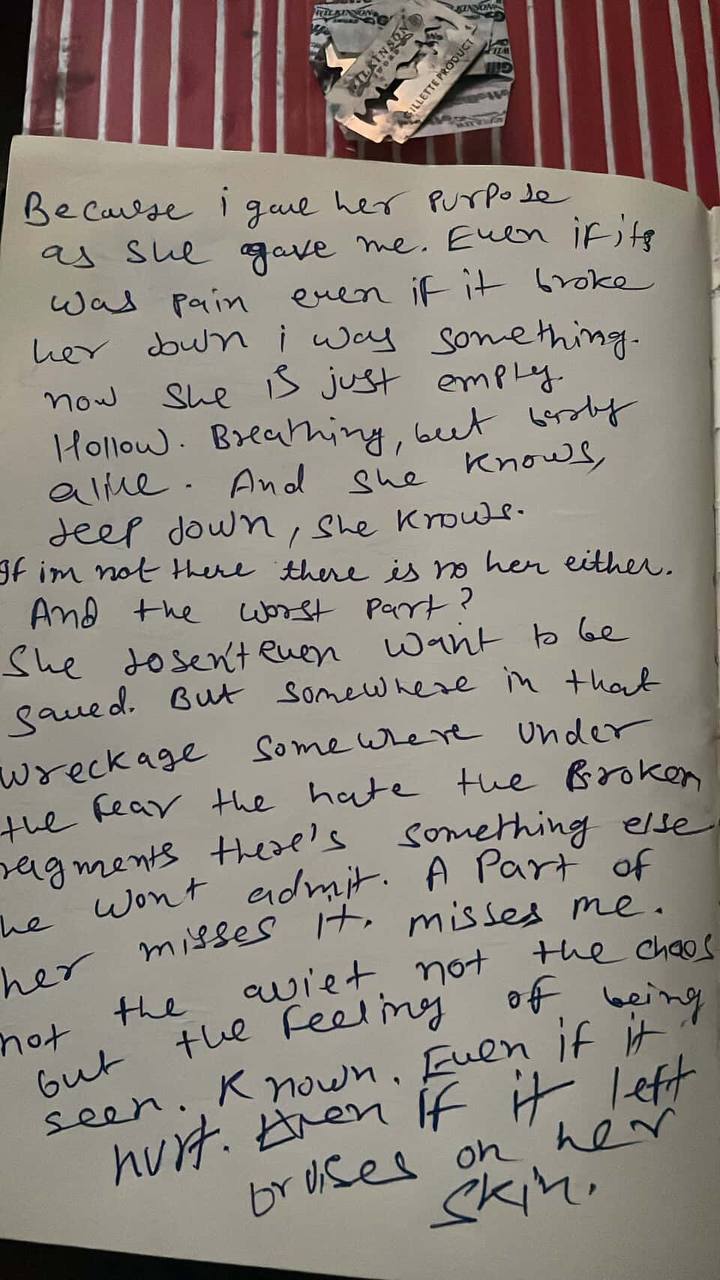 WILKINSON
WILKINSON
SWORD
GILLETTE PRODUCT
Because i gave her purpose
as she gave me. Even if its
was pain even if it broke
her down i was something.
now she is just empty
Hollow. Breathing, but barly
alive. And she knows,
deep down, she knows.
If im not there there is no her either.
And the worst part?
She dosen't even want to be
saved. But somewhere in that
wreckage somewhere under
the fear the hate the Broken
ragments there's something else
he wont admit. A part of
her misses it. misses me.
not the quiet not the chaos
but the feeling of being
seen. Known. Even if it
hurt. Even if it left
bruises on her
skin.